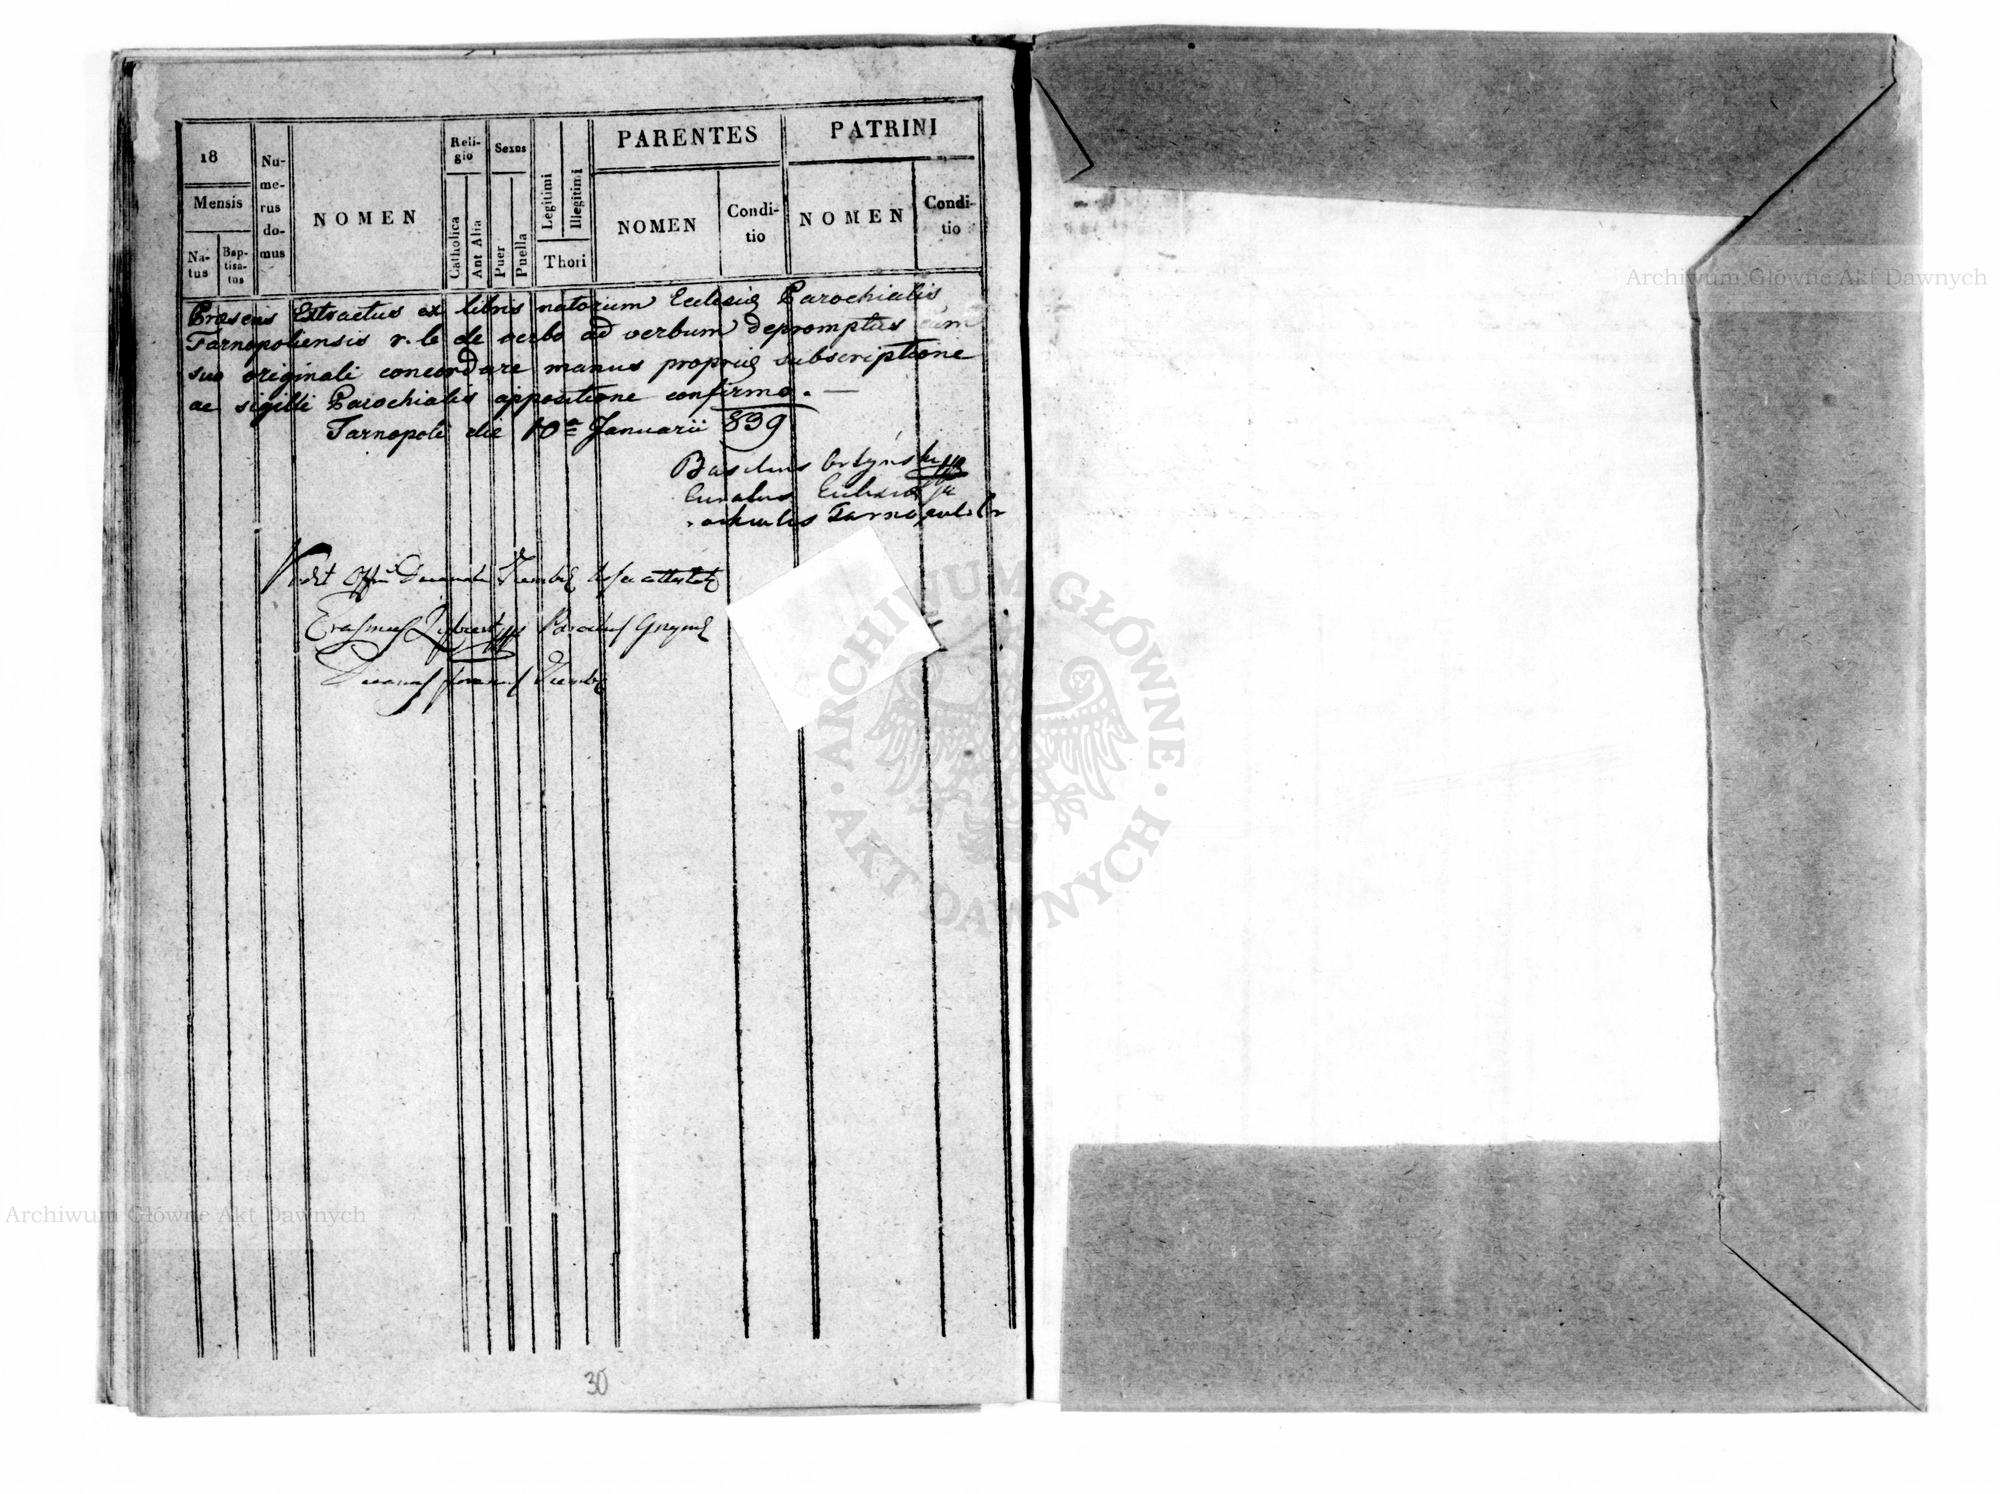 18
Mensis
Na-
tus
Bap-
tisa-
tus
Nu-
me-
rus
do-
mus
NOMEN
Reli-
gio
Catholica
Aut Alia
Sexus
Puer
Puella
Legitimi
Illegitimi
Thori
PARENTES
NOMEN
Condi-
tio
PATRINI
NOMEN
Condi-
tio
Præsens Extractus ex libris natorum Ecclesiæ Parochialis
Tarnopoliensis r. l. de verbo ad verbum depromptus cum
suo originali concordare manus propriæ subscriptione
ac sigilli Parochialis appositione confirmo. —
Tarnopoli die 10ª Januarii 839
Basilius
Curatus Ecclesiæ Pa
rochialis Tarnopolien
Vidit Decanatus
Erasmus Parochus
Decanus foraneus
30
Archiwum Główne Akt Dawnych
ARCHIWUM GŁÓWNE · AKT DAWNYCH ·
Archiwum Główne Akt Dawnych